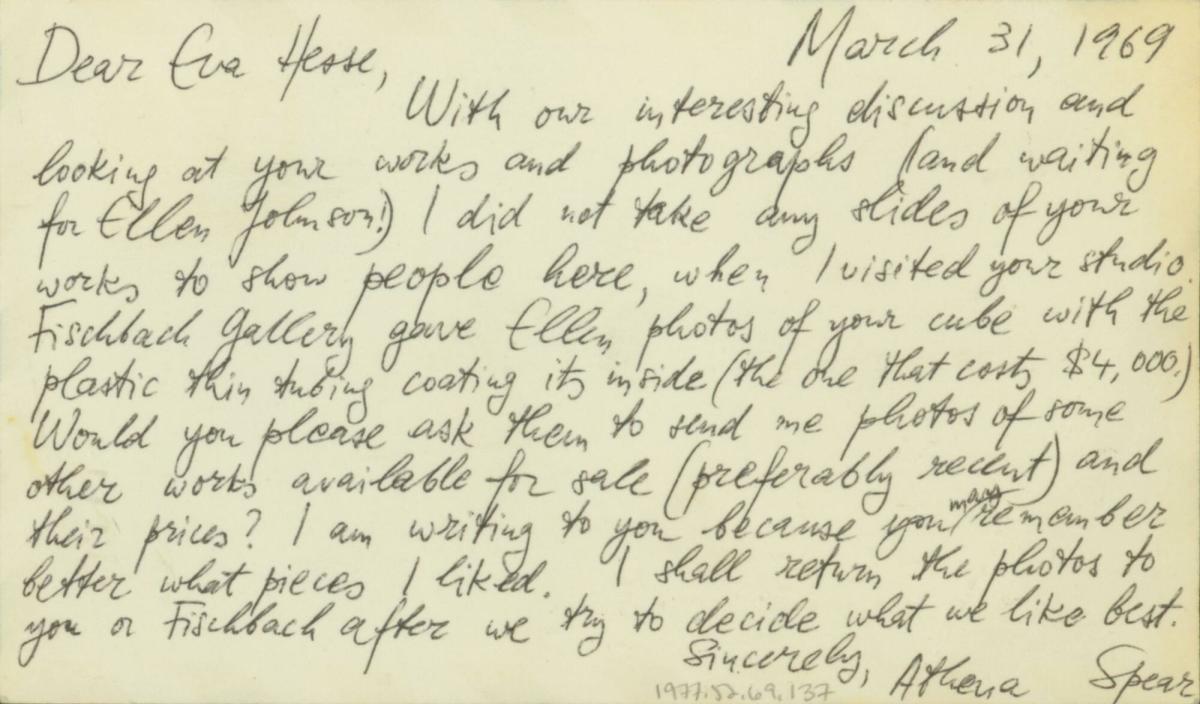 March 31, 1969
Dear Eva Hesse,
With our interesting discussion and
looking at your works and photographs (and waiting
for Ellen Johnson!) I did not take any slides of your
works to show people here, when I visited your studio.
Fischbach Gallery gave Ellen photos of your cube with the
plastic thin tubing coating its inside (the one that costs $4,000.)
Would you please ask them to send me photos of some
other works available for sale (preferably recent) and
their prices? I am writing to you because you may remember
better what pieces I liked. I shall return the photos to
you or Fischbach after we try to decide what we like best.
Sincerely, Athena Spear
1977.52.69.137